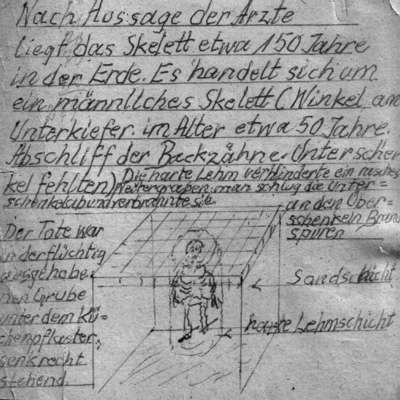 Nach Aussage der Ärzte
liegt das Skelett etwa 150 Jahre
in der Erde. Es handelt sich um
ein männliches Skelett (Winkel am
Unterkiefer. im Alter etwa 50 Jahre.
Abschliff der Backzähne. Unterschen
kel fehlten) Die harte Lehm verhinderte ein rasches
Weitergraben, man schlug die Unter=
schenkel ab und verbrannte sie.
an den Ober=
schenkeln Brand
spuren
Der Tote war
in der flüchtig
ausgehobe=
nen Grube
unter dem Kü=
chenpflaster,
senkrecht
stehend.
Sandschicht
harte Lehmschicht